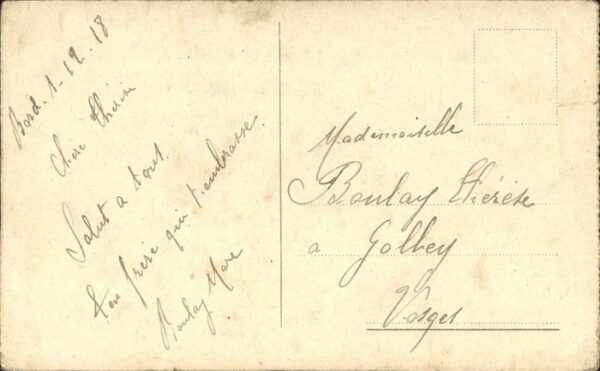 Bord. 1-12.18
Chère Thérèse
Salut a tous.
Ton frère qui t'embrasse.
Boulay Marc
Mademoiselle
Boulay Thérèse
a Golbey
Vosges